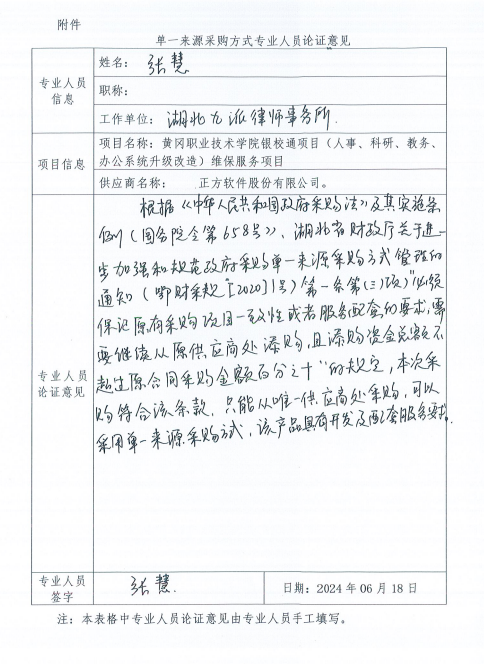 附件
单一来源采购方式专业人员论证意见
专业人员
信息
姓名：张慧
职称：
工作单位：湖北九派律师事务所
项目信息
项目名称：黄冈职业技术学院银校通项目（人事、科研、教务、
办公系统升级改造）维保服务项目
供应商名称： 正方软件股份有限公司。
专业人员
论证意见
根据《中华人民共和国政府采购法》及其实施条
例（国务院令第658号）、湖北省财政厅关于进一
步加强和规范政府采购单一来源采购方式管理的
通知（鄂财采规[2020]1号）第一条第（三）项"必须
保证原有采购项目一致性或者服务配套的要求，需
要继续从原供应商处添购，且添购资金总额不
超过原合同采购金额百分之十"的规定，本次采
购符合该条款，只能从唯一供应商处采购，可以
采用单一来源采购方式，该产品具有开发及配套服务要求。
专业人员
签字
张慧
日期：2024年06月18日
注：本表格中专业人员论证意见由专业人员手工填写。